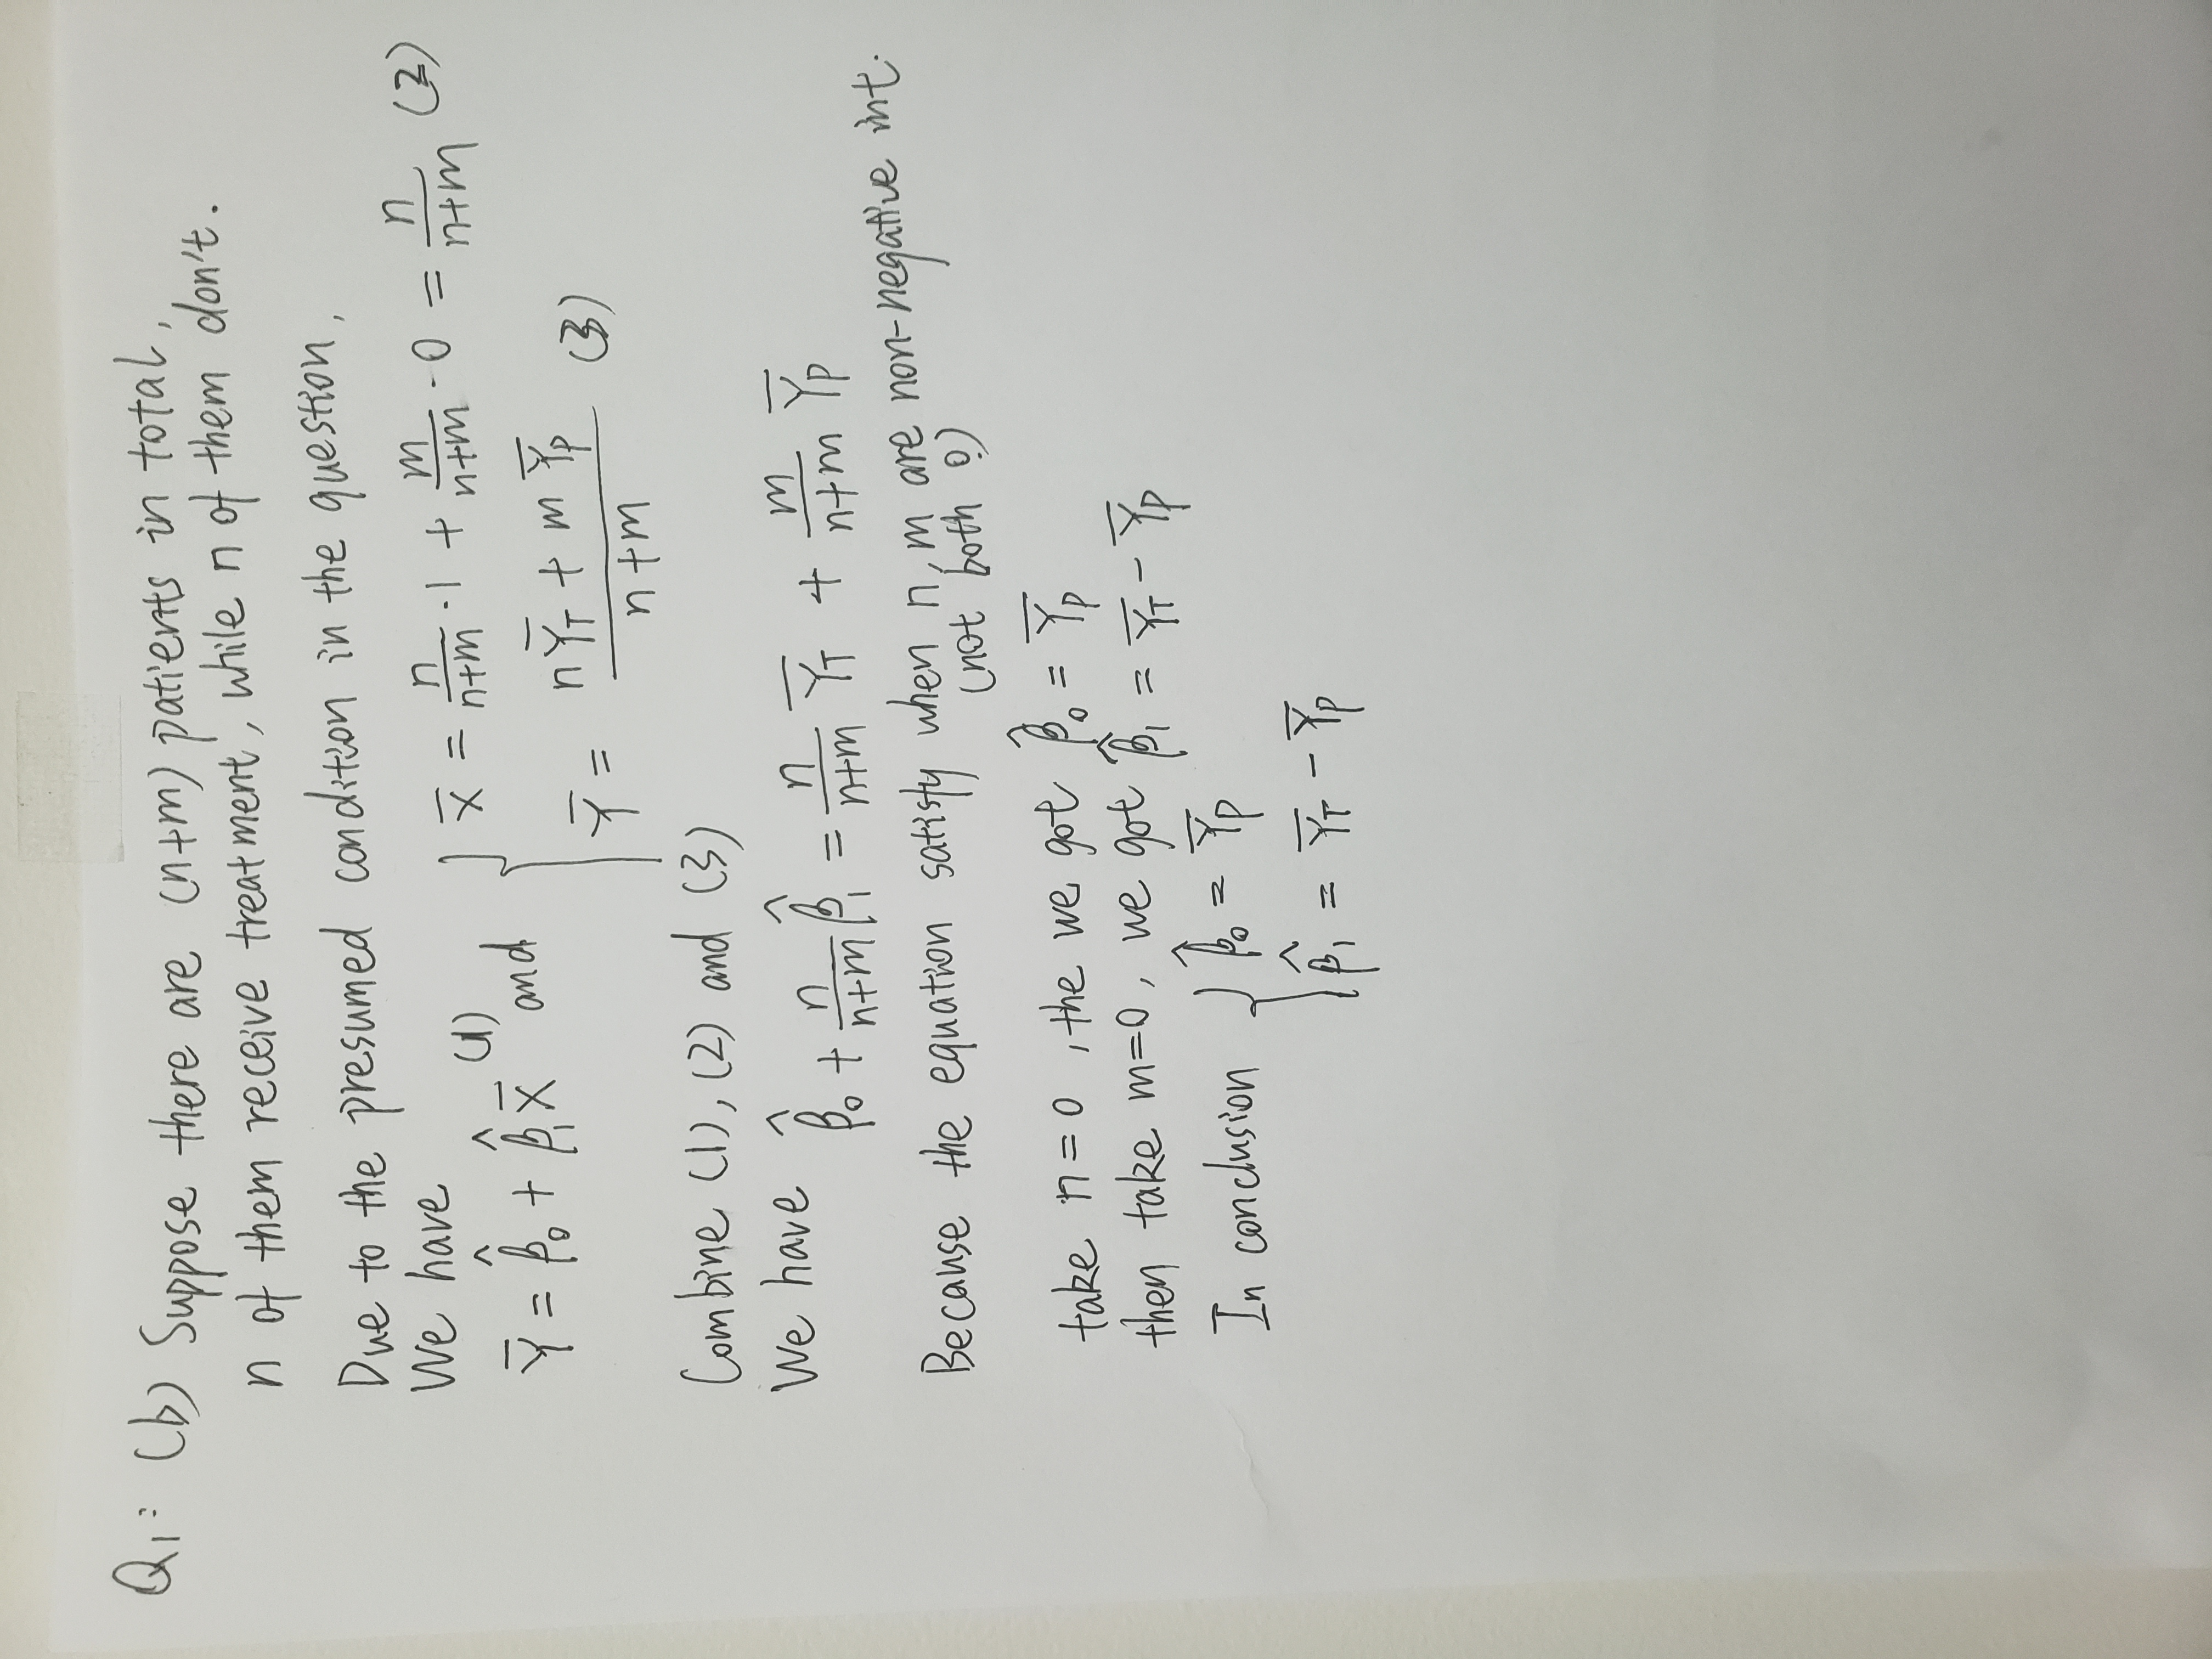 Q1: (b) Suppose there are (n+m) patients in total,
n of them receive treatment, while n of them don't.
Due to the presumed condition in the question,
We have
Ȳ = β̂₀ + β̂₁X̄ (1) and { X̄ = n/(n+m) · 1 + m/(n+m) · 0 = n/(n+m) (2)
Ȳ = (nȲ_T + mȲ_P)/(n+m) (3)
Combine (1), (2) and (3)
We have β̂₀ + n/(n+m) β̂₁ = n/(n+m) Ȳ_T + m/(n+m) Ȳ_P
Because the equation satisfy when n, m are non-negative int.
(not both 0)
take n=0, the we got β̂₀ = Ȳ_P
then take m=0, we got β̂₁ = Ȳ_T - Ȳ_P
In conclusion { β̂₀ = Ȳ_P
β̂₁ = Ȳ_T - Ȳ_P